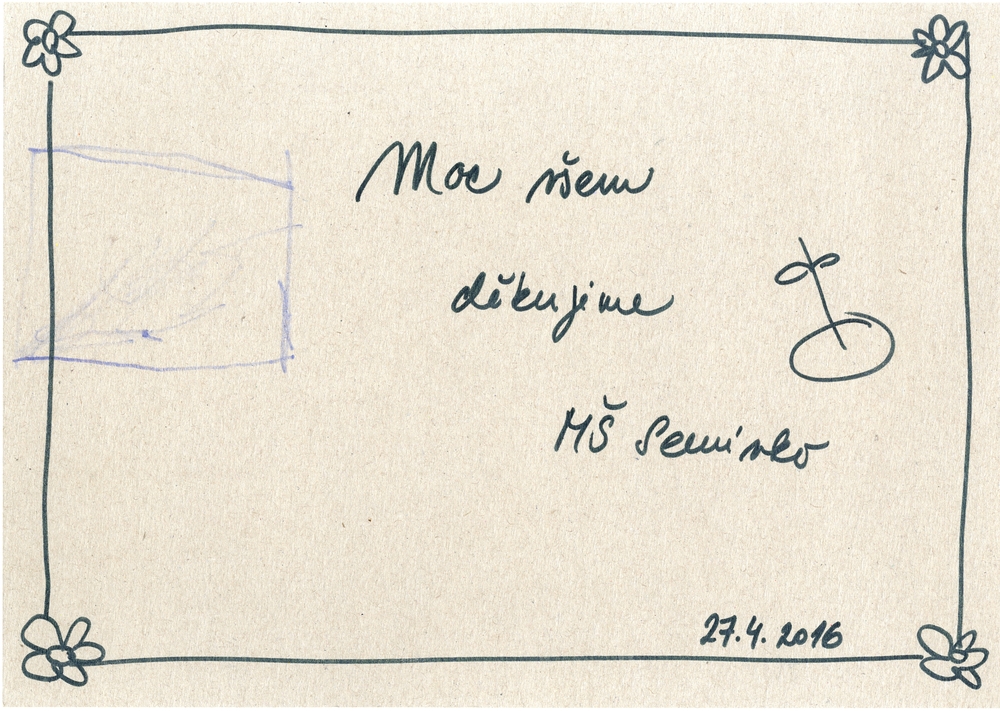 Moc všem
děkujime
MŠ Semínko
27.4.2016